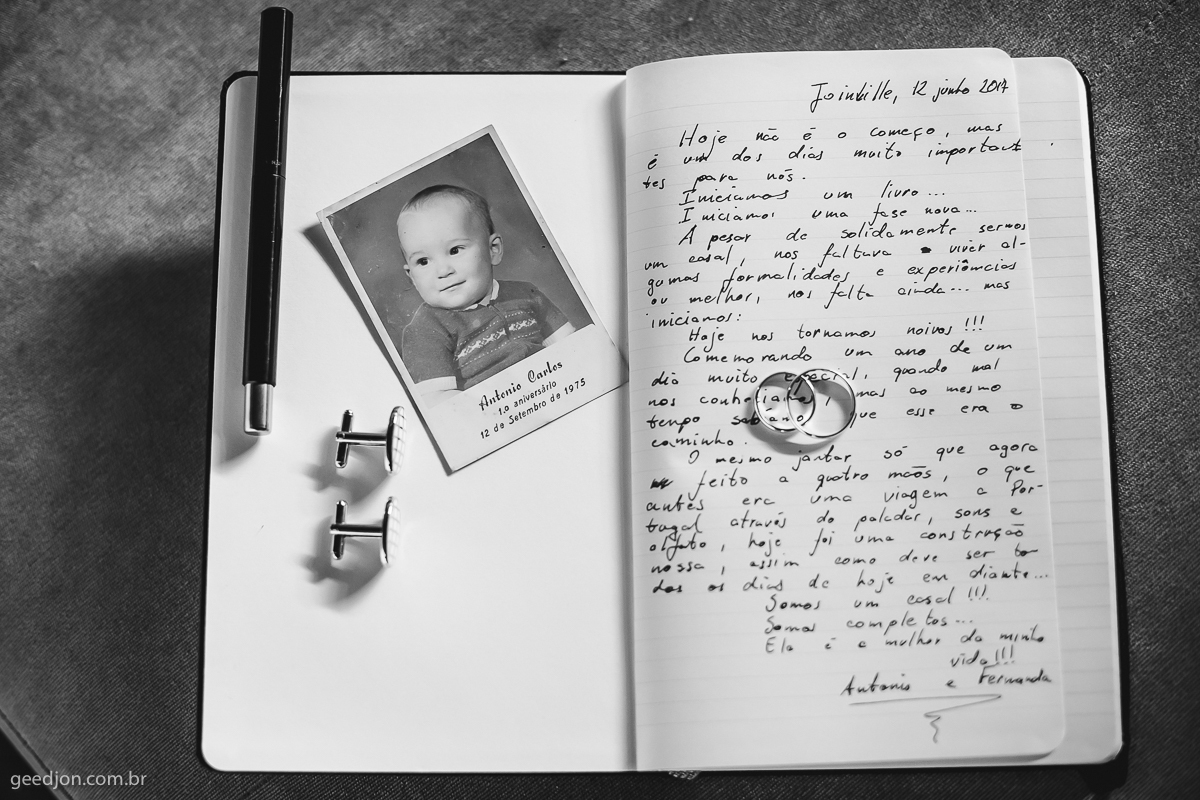 Antonio Carlos
1.o aniversário
12 de Setembro de 1975
Joinville, 12 junho 2017
Hoje não é o começo, mas
é um dos dias muito important
tes para nós.
Iniciamos um livro...
Iniciamos uma fase nova...
Apesar de solidamente sermos
um casal, nos faltava viver al-
gumas formalidades e experiências
ou melhor, nos falta ainda... mas
iniciamos:
Hoje nos tornamos noivos!!!
Comemorando um ano de um
dia muito especial, quando mal
nos conhecíamos, mas ao mesmo
tempo sabíamos que esse era o
caminho.
O mesmo jantar só que agora
feito a quatro mãos, o que
antes era uma viagem a Por-
tugal através do paladar, sons e
olfato, hoje foi uma construção
nossa, assim como deve ser to-
dos os dias de hoje em diante...
Somos um casal!!!
Somos completos...
Ela é a mulher da minha
vida!!!
Antonio e Fernanda
geedjon.com.br